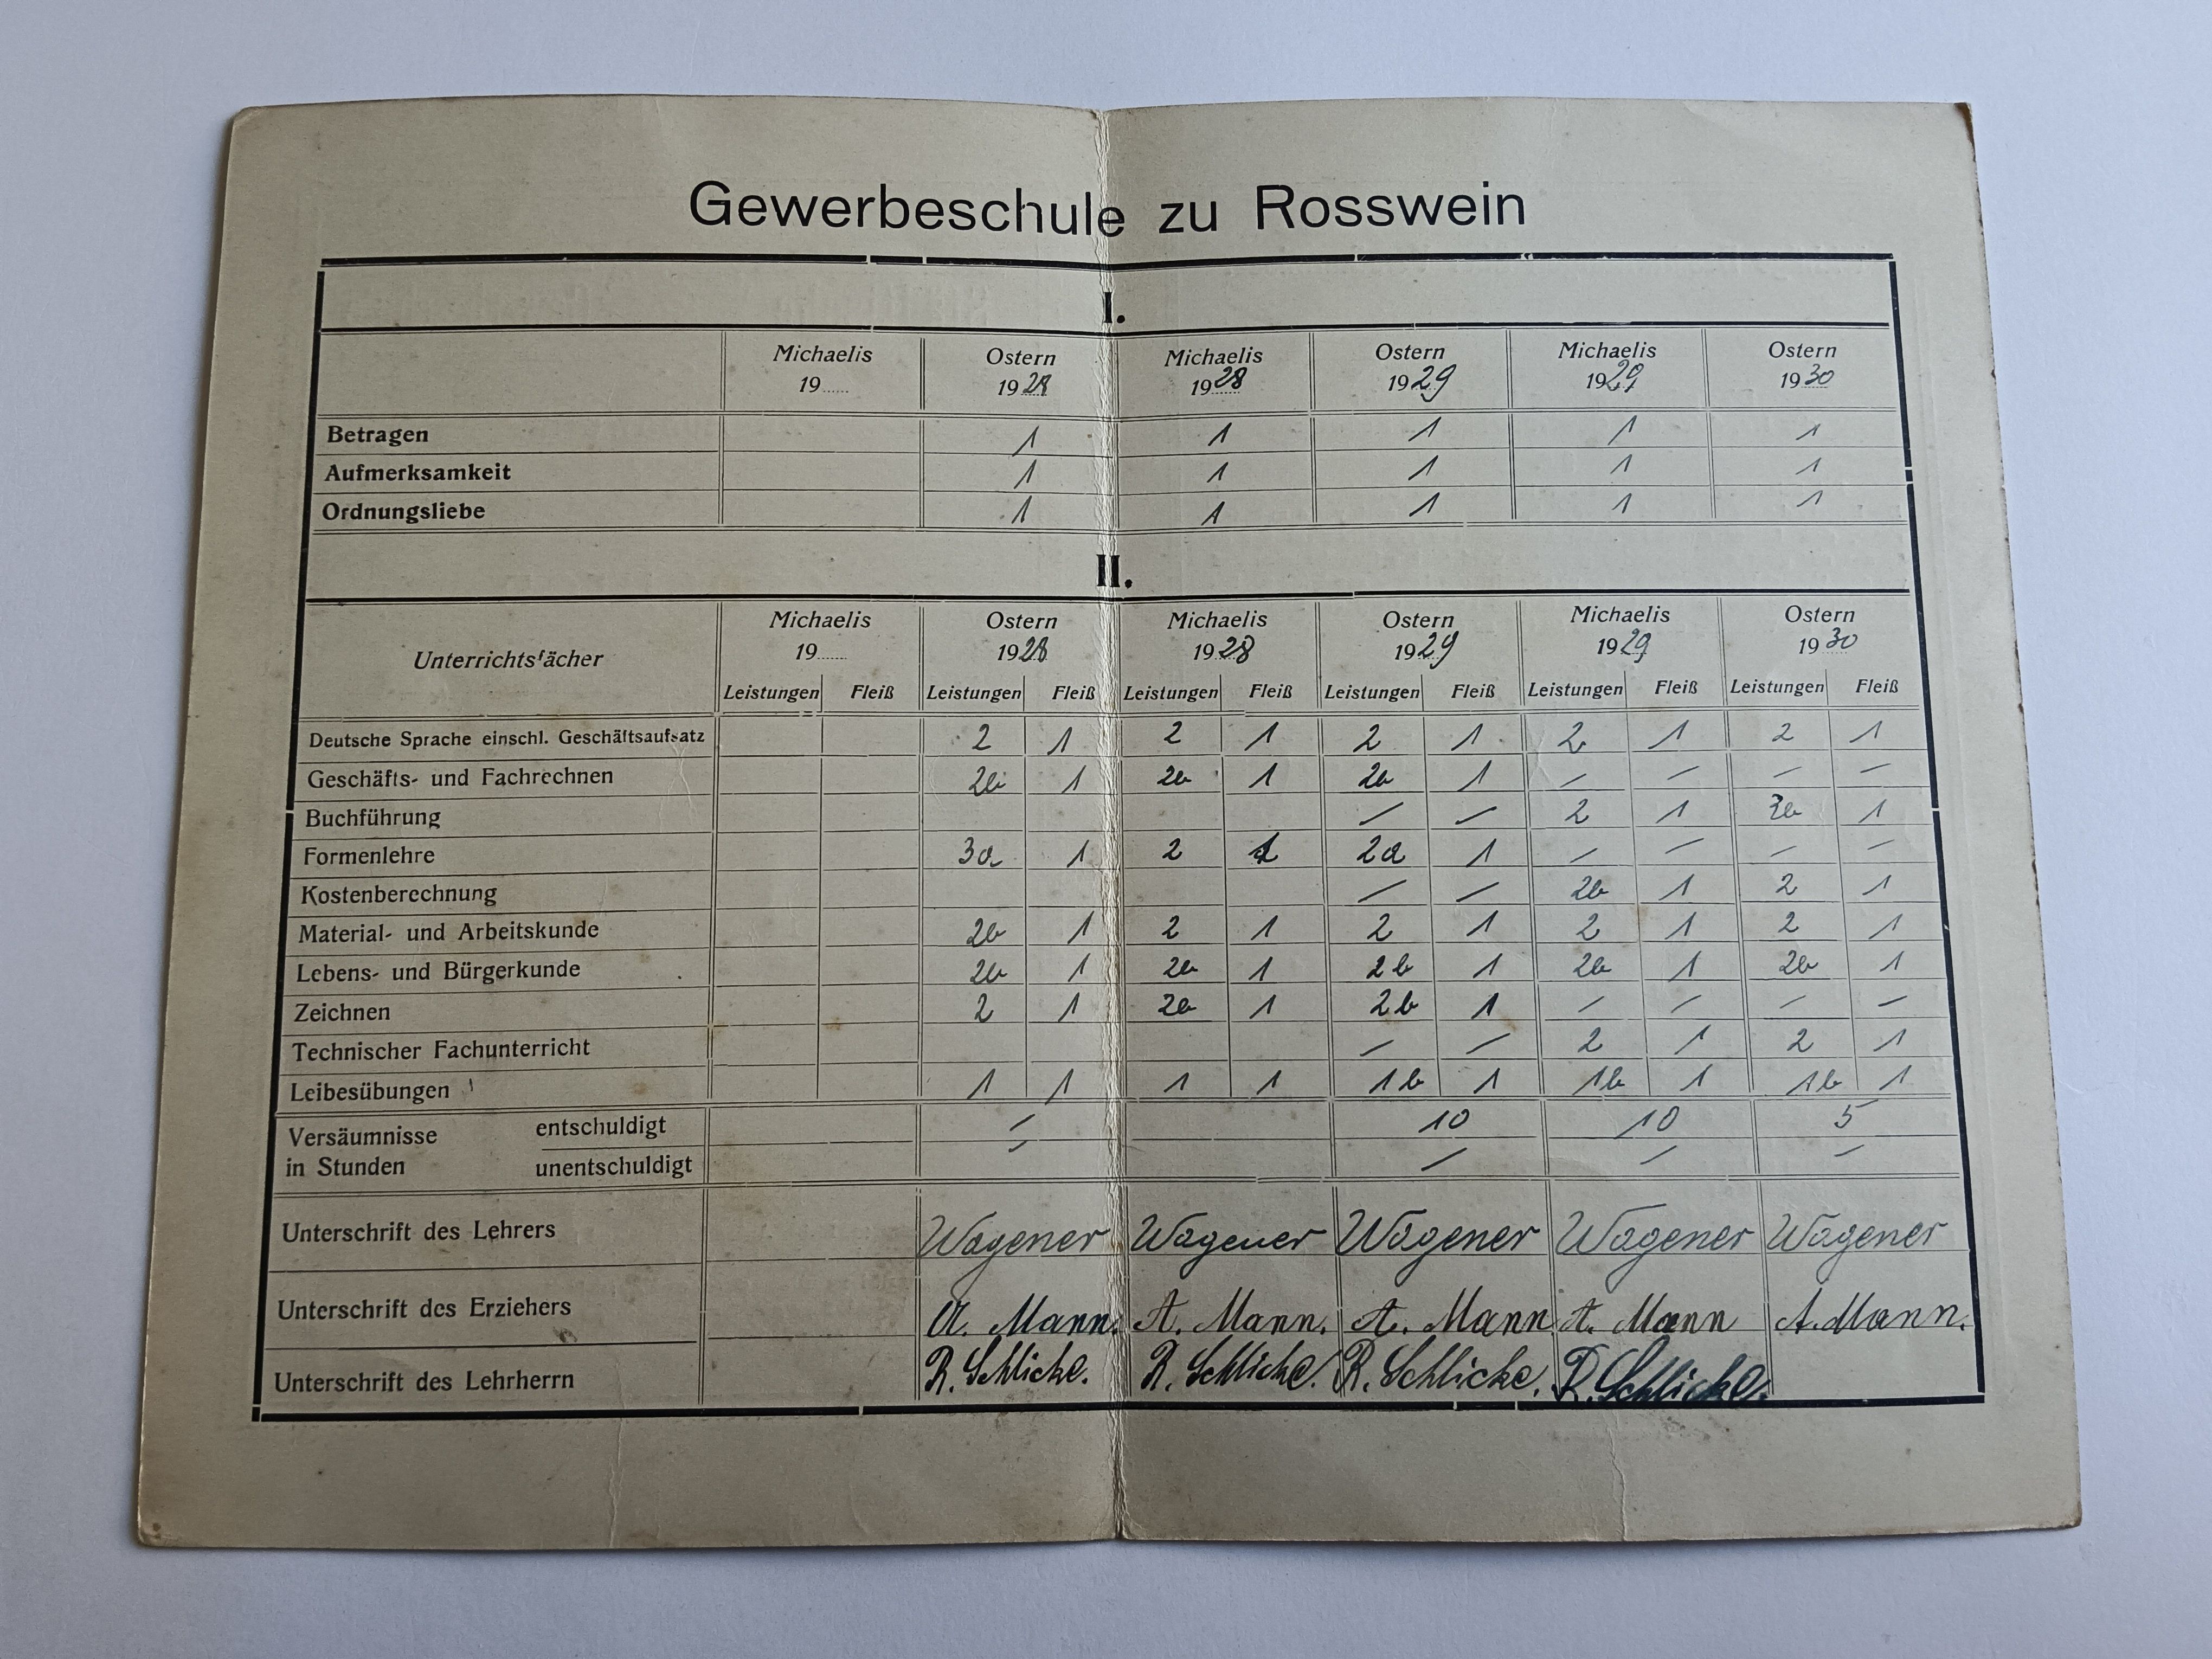 Gewerbeschule zu Rosswein
I.
Michaelis Ostern Michaelis Ostern Michaelis Ostern
19 1928 1928 1929 1929 1930
Betragen 1 1 1 1 1
Aufmerksamkeit 1 1 1 1 1
Ordnungsliebe 1 1 1 1 1
II.
Michaelis Ostern Michaelis Ostern Michaelis Ostern
Unterrichtsfächer 19 1928 1928 1929 1929 1930
Leistungen Fleiß Leistungen Fleiß Leistungen Fleiß Leistungen Fleiß Leistungen Fleiß Leistungen Fleiß
Deutsche Sprache einschl. Geschäftsaufsatz 2 1 2 1 2 1 2 1 2 1
Geschäfts- und Fachrechnen 2b 1 2b 1 2b 1 – – – –
Buchführung – – 2 1 1
Formenlehre 3a 1 2 2a 1 – – – –
Kostenberechnung – – 2b 1 2 1
Material- und Arbeitskunde 2b 1 2 1 2 1 2 1 2 1
Lebens- und Bürgerkunde 2b 1 2b 1 2b 1 2b 1 2b 1
Zeichnen 2 1 2b 1 2b 1 – – – –
Technischer Fachunterricht – – 2 1 2 1
Leibesübungen 1 1 1 1 1b 1 1b 1 1b 1
Versäumnisse in Stunden entschuldigt – 10 10 5
unentschuldigt – – – –
Unterschrift des Lehrers Wagener Wagener Wagener Wagener Wagener
Unterschrift des Erziehers A. Mann. A. Mann. A. Mann A. Mann A. Mann.
Unterschrift des Lehrherrn R. Schlicke. R. Schlicke. R. Schlicke. R. Schlicke.